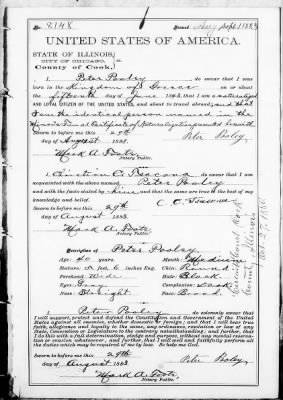 No. 8148 Issued Sept 1 1883
UNITED STATES OF AMERICA.
STATE OF ILLINOIS,
CITY OF CHICAGO, SS.
County of Cook.
I, Peter Pooley do swear that I was
born in the Kingdom of Greece on or about
the fifteenth day of June 1843, that I am a naturalized
AND LOYAL CITIZEN OF THE UNITED STATES, and about to travel abroad, and that
I am the identical person named in the
Certificate of Naturalization
Sworn to before me this 29th Peter Pooley.
day of August 1883.
Mark A. Foote
Notary Public.
I, Christian C. do swear that I am
acquainted with the above named Peter Pooley
and with the facts stated by him, and that the same are true to the best of my
knowledge and belief.
Sworn to before me this 29th
day of August 1883.
Mark A. Foote
Notary Public.
Description of Peter Pooley
Age: 40 years Mouth: Medium
Stature: 5 feet, 6 inches Eng. Chin: Round
Forehead: Wide Hair: Black
Eyes: Gray Complexion: Dark
Nose: Straight Face: Broad
I, Peter Pooley do solemnly swear that
I will support, protect and defend the Constitution and Government of the United
States against all enemies, whether domestic or foreign; and that I will bear true
faith, allegiance and loyalty to the same, any ordinance, resolution or law of any
State, Convention or Legislature to the contrary notwithstanding; and further, that
I do this with a full determination, pledge and purpose, without any mental reservation
or evasion whatsoever; and further, that I will well and faithfully perform all
the duties which may be required of me by law. So help me God.
Sworn to before me this 29th
day of August 1883 Peter Pooley.
Mark A. Foote
Notary Public.